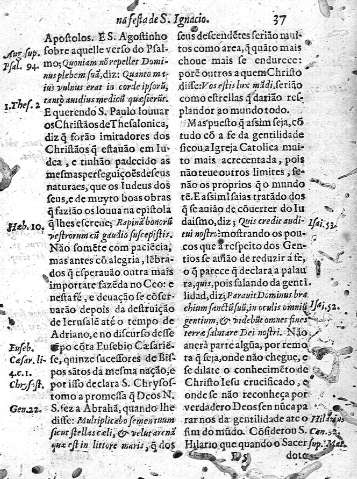 na festa de S. Ignacio. 37
Apostolos. E S. Agostinho
sobre aquelle verso do Psal-
mo; Quoniam nõ repellet Domi-
nus plebem suã, diz: Quanto me-
ius vulnus erat in corde ipsorũ,
tentò audius medicũ quæsierũt.
E querendo S. Paulo louuar
os Christãos de Thesalonica,
diz q̃ forão imitadores dos
Christãos q̃ estauão em Iu-
dea, e tinhão padecido as
mesmas perseguiçoẽs de seus
naturaes, que os Iudeus dos
seus, e de muyto boas obras
q̃ fazião os louua na epistola
q̃ lhes escreue; Rapinã bonorũ
vestrorum cũ gaudio suscepistis.
Não somẽte com paciẽcia,
mas antes cõ alegria, lẽbra-
dos q̃ esperauão outra mais
importate fazẽda no Ceo: e
nesta fé, e deuação se cõser-
uarão depois da destruição
de Ierusalẽ atè o tempo de
Adriano, e no discurso desse
tẽpo cõta Eusebio Cæsariẽ-
se, quinze sucessores de Bis-
pos sãtos da mesma nação, e
por isso declara S. Chrysos-
tomo a promessa q̃ Deos N.
S. fez a Abrahã, quando lhe
disse: Multiplicabo semen tuum
sicut stellas cœli, & velut arenã
quæ est in littore maris, q̃ dos
Aug. sup.
Psal. 94.
1. Thes. 2
Heb. 10.
Euseb.
Cæsar. li-
4. c. 1.
Chrysost.
Gen. 22.
seus descendẽtes serião mui-
tos como area, q̃ quãto mais
choue mais se endurece:
porẽ outros a quem Christo
disse: Vos estis lux mũdi, serião
como estrellas q̃ darião res-
plandor ao mundo todo.
Mas posto q̃ assim seja, cõ
tudo cõ a fe da gentilidade
ficou a Igreja Catolica mui-
to mais acrecentada, pois
não teue outros limites, se-
não os proprios q̃ o mundo
tẽ. E assim Isaias tratado dos
q̃ se auião de cõuerter do Iu-
daismo, diz; Quis credit audi-
tui nostro: mostrando os pou-
cos que a respeito dos Gen-
tios se auião de reduzir á fè,
o q̃ parece q̃ declara a palau-
ra, quis, pois falando da gentili-
dade, diz; Parauit Dominus bra-
chium sanctũ suũ, in oculis omniũ
gentium, & videbũt omnes fines
terræ salutare Dei nostri. Não
auerà parte algũa, por remo-
ta q̃ seja, onde não chegue, e
se dilate o conhecimẽto de
Christo Iesu crucificado, e
onde se não reconheça por
verdadero Deos sen nũca pa-
rar nos da gentilidade atè o
fim do mũdo. Cõsiderou S.
Hilario que quando o Sacer
dote
Isai. 53.
Isai. 52.
Hilarius
Can. 32.
sup. Mat.